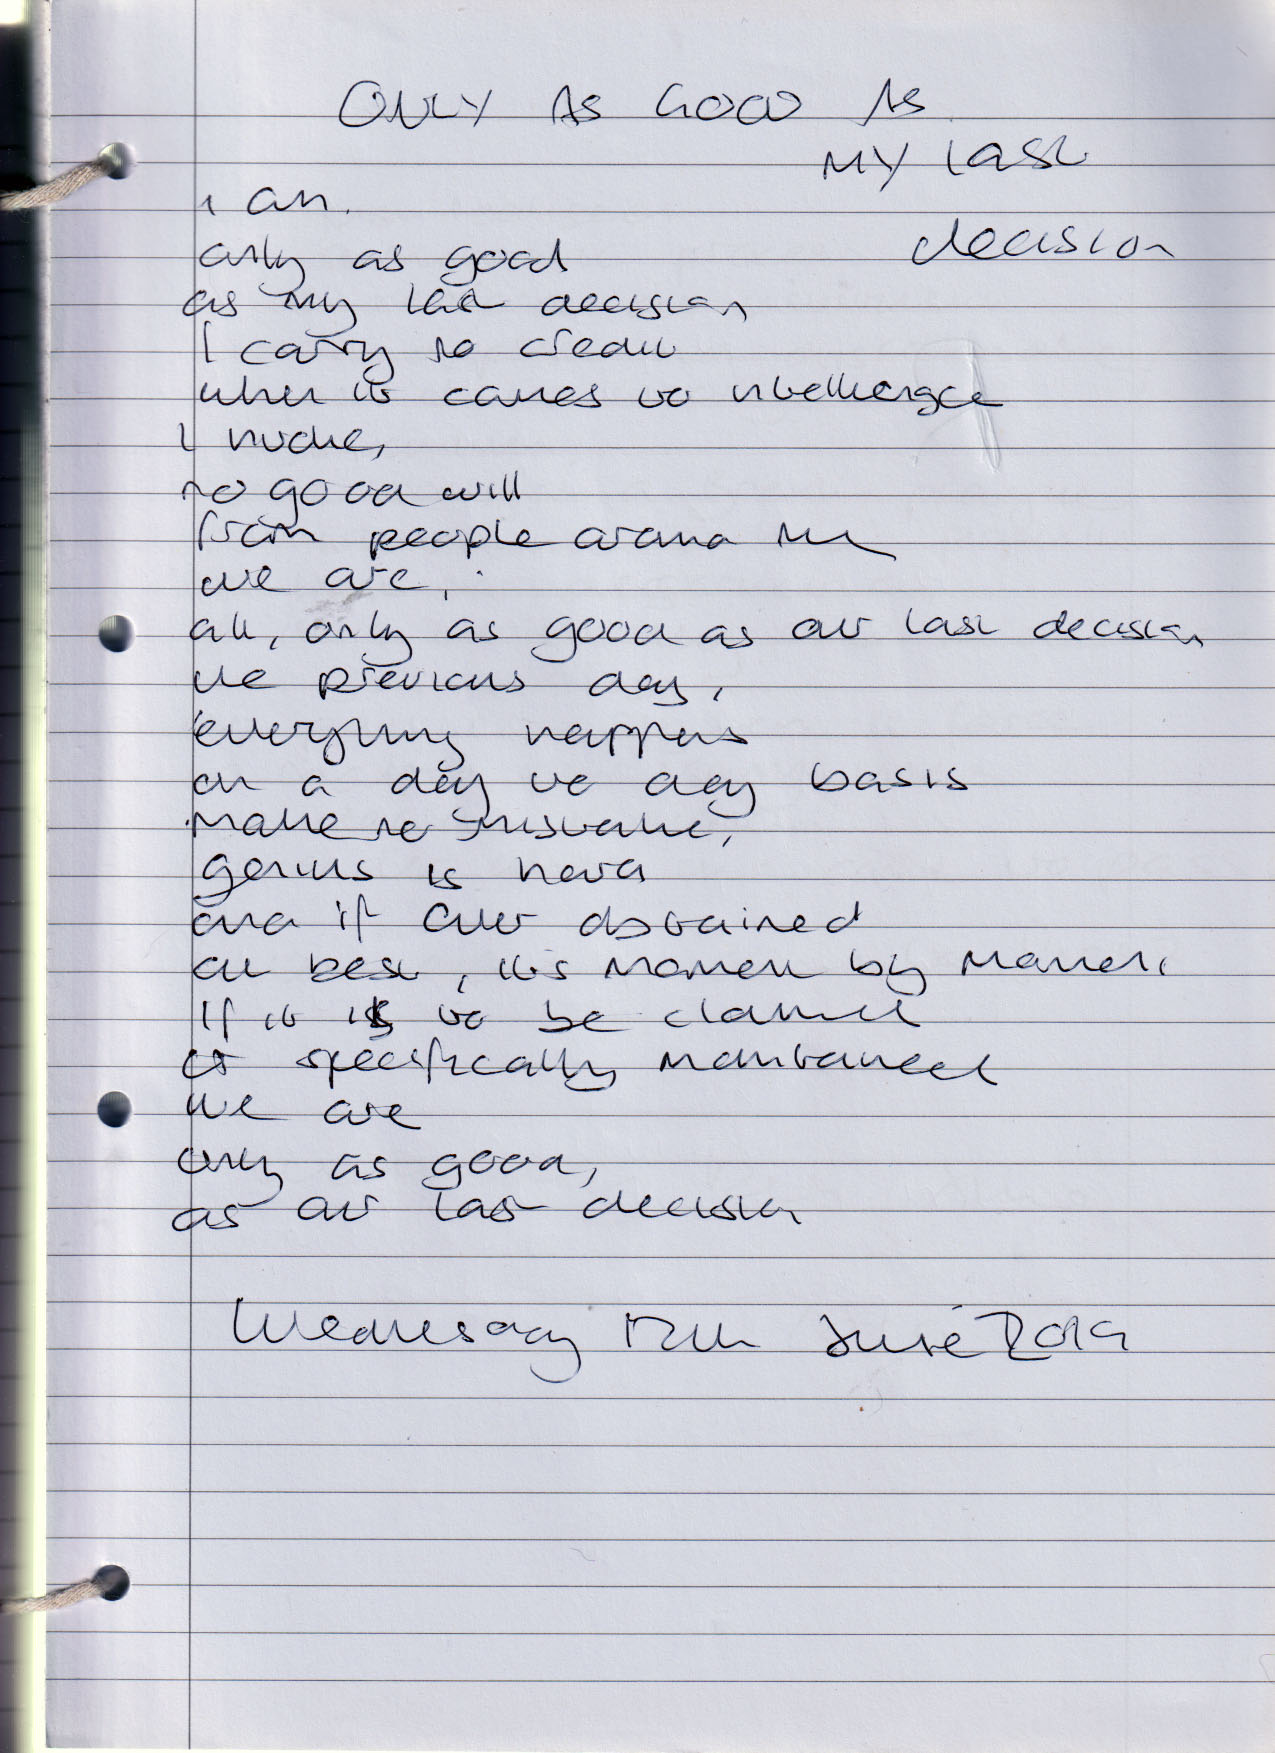 ONLY AS GOOD AS
MY last
decision
I am.
only as good
as my last decision
I carry no credit
when it comes to intelligence
I
no good will
from people around me
we are,
all, only as good as our last decision
the previous day,
everything happens
on a day to day basis
make no mistake,
genius is hard
and if ever obtained
at best, it's moment by moment
If it is to be claimed
or specifically maintained
we are
only as good,
as our last decision
Wednesday 12th June 2019